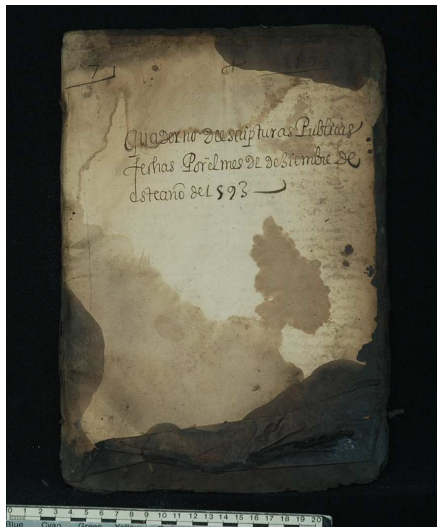 71
Quaderno de escripturas Publicas
fechas Por el mes de desiembre de
este año de 1593
0 1 2 3 4 5 6 7 8 9 10 11 12 13 14 15 16 17 18 19 20
Blue Cyan Green Yellow